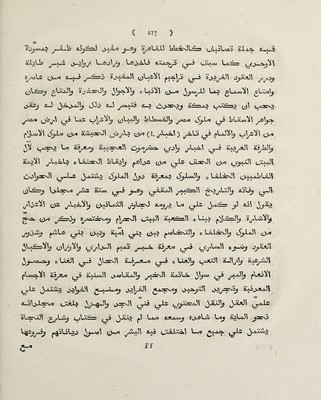 ( ٤١٧ )
فيه جملة تصانيف كالخطط للقاهرة وهو مفيد لكونه ظفر بمسودة
الاوحدي كما سبق في ترجمته فاخذها وزادها زوايد غير طايلة
ودرر العقود الفريدة في تراجم الاعيان المفيدة ذكر فيه من عاصره
وامتاع الاسماع بما للرسول من الانباء والاحوال والحفدة والمتاع وكان
يحب ان يكتب بمكة ويحدث به فتيسر له ذلك والمدخل له وعقد
جواهر الاسقاط في ملوك مصر والفسطاط والبيان والاعراب عما في ارض مصر
من الاعراب والالمام في تاخر (اخبار .l) من بارض الحبشة من ملوك الاسلام
والطرفة الغريبة في اخبار وادي حضرموت العجيبة ومعرفة ما يجب لآل
البيت النبوي من الحق علي من عداهم وايقاظ الحنفاء باخبار الايمة
الفاطميين الخلفاء والسلوك بمعرفة دول الملوك يشتمل علي الحوادث
الي وفاته والتاريخ الكبير المقفي وهو في ستة عشر مجلدا وكان
يقول انه لو كمل علي ما يرومه لجاوز الثمانين والاخبار عن الاعذار
والاشارة والكلام ببناء الكعبة البيت الحرام ومختصره وذكر من حج
من الملوك والخلفاء والتخاصم بين بني امية وبين بني هاشم وشذور
العقود وضوء الساري في معرفة خبر تميم الداري والاوزان والاكيال
الشرعية وازالة التعب والعناء في معرفة الحال في الغناء وحصول
الانعام والمير في سوال خاتمة الخير والمقاصد السنية في معرفة الاجسام
المعدنية وتجريد التوحيد ومجمع الفرايد ومنبع الفوايد يشتمل علي
علمي العقل والنقل المحتوي علي فني الجد والهزل بلغت مجلداته
نحو الماية وما شاهده وسمعه مما لم ينقل في كتاب وشارع النجاة
يشتمل علي جميع ما اختلفت فيه البشر من اصول دياناتهم وفروعها
Ff مع